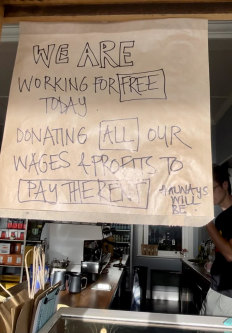 WE ARE
WORKING FOR FREE
TODAY.
DONATING ALL OUR
WAGES & PROFITS TO
PAY THE RENT
ALWAYS
WILL
BE.